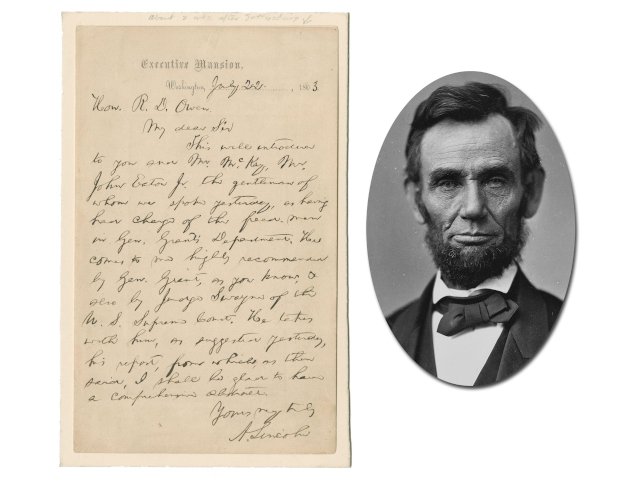 About 2 wks after Gettysburg
Executive Mansion,
Washington, July 22, 1863.
Hon. R. D. Owen
My dear Sir
This will introduce
to you and Mr. McKay, Mr.
John Eaton Jr. the gentleman of
whom we spoke yesterday, as having
had charge of the freed-men
in Gen. Grant's Department. He
comes to me highly recommended
by Gen. Grant, as you know, &
also by Judge Swayne of the
U. S. Supreme Court. He takes
with him, as suggested yesterday,
his report, from which, as then
said, I shall be glad to have
a comprehensive abstract.
Yours very truly
A. Lincoln